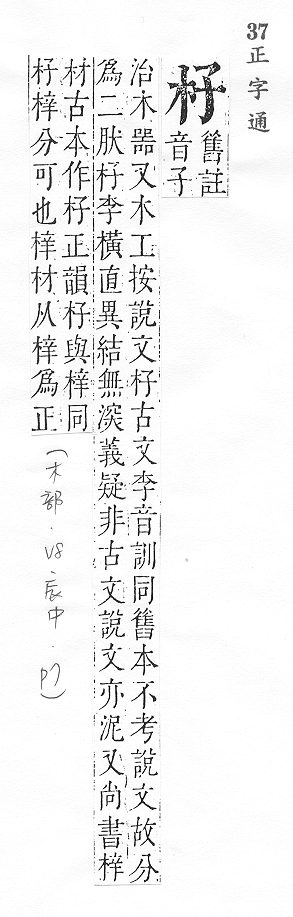 37
正字通
杍
舊註
音子
治木器又木工按說文杍古文李音訓同舊本不考說文故分
為二肰杍李橫直異結無湥義疑非古文說文亦泥又尚書梓
材古本作杍正韻杍與梓同
杍梓分可也梓材从梓為正
(木部.V8.辰中.P7)